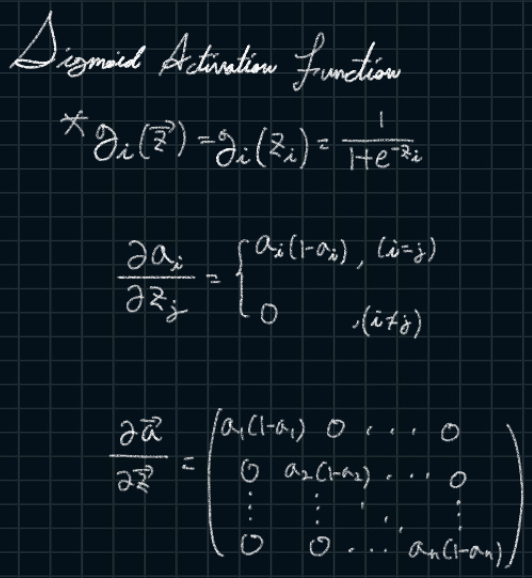 Sigmoid Activation Function
* g_i(\vec{z}) = g_i(z_i) = \frac{1}{1+e^{-z_i}}
\frac{\partial a_i}{\partial z_j} = \begin{cases} a_i(1-a_i), (i=j) \\ 0, (i≠j) \end{cases}
\frac{\partial \vec{a}}{\partial \vec{z}} = \begin{pmatrix} a_1(1-a_1) & 0 & \cdots & 0 \\ 0 & a_2(1-a_2) & \cdots & 0 \\ \vdots & \vdots & \ddots & \vdots \\ 0 & 0 & \cdots & a_n(1-a_n) \end{pmatrix}